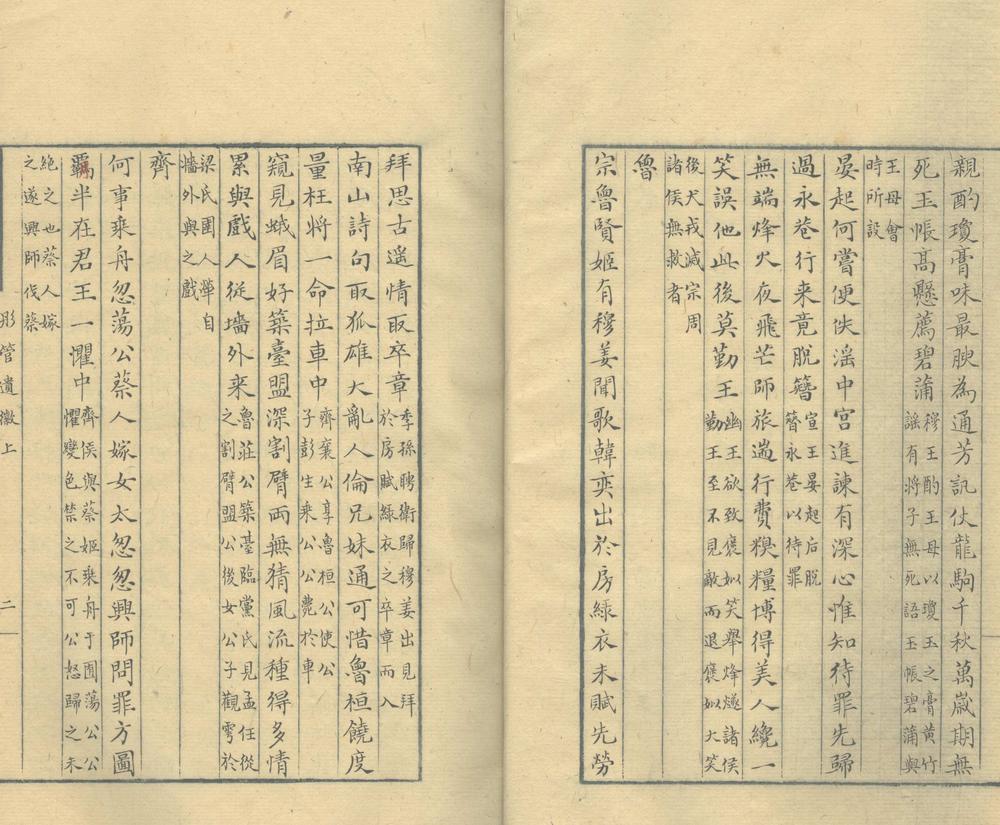 親酌瓊膏味最腴為通芳訊伏龍駒千秋萬歲期無
死玉帳高懸薦碧蒲穆王酌王母以瓊玉之膏黃竹謠有將子無死語玉帳碧蒲與
王母會時所設
晏起何嘗便佚滛中宮進諫有深心惟知待罪先歸
過永巷行来竟脫簪宣王晏起后脫簪永巷以待罪
無端烽火夜飛芒師旅遄行費糗糧博得美人纔一
笑誤他此後莫勤王幽王欲致褒姒笑舉烽燧諸侯勤王至不見敵而退褒姒大笑
後犬戎滅宗周諸侯無救者
魯
宗魯賢姬有穆姜聞歌韓奕出於房綠衣未賦先勞
拜思古遥情取卒章季孫聘衛歸穆姜出見拜於房賦綠衣之卒章而入
南山詩句取狐雄大亂人倫兄妹通可惜魯桓饒度
量枉將一命拉車中齊襄公享魯桓公使公子彭生乘公公薨於車
窺見蛾眉好築臺盟深割臂兩無猜風流種得多情
累與戲人從墻外来魯莊公築臺臨黨氏見孟任從之割臂盟公後女公子觀雩於
梁氏圉人犖自墻外與之戲
齊
何事乘舟忽蕩公蔡人嫁女太忽忽興師問罪方圖
霸半在君王一懼中齊侯與蔡姬乘舟于囿蕩公公懼變色禁之不可公怒歸之未
絶之也蔡人嫁之遂興師伐蔡
彤管遺徽上
二